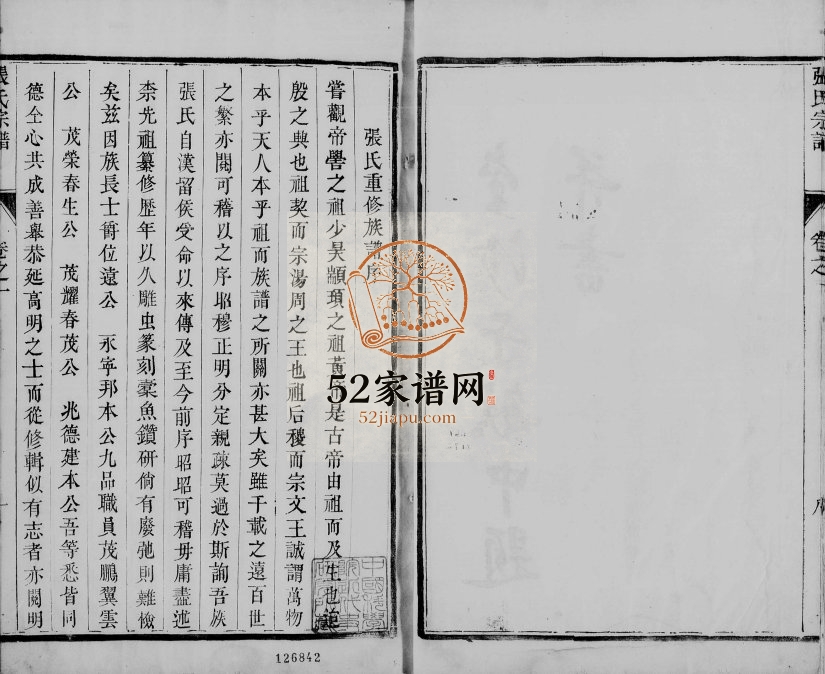 張氏宗譜
卷之一
序
張氏重修族譜序
嘗觀帝嚳之祖少昊顓頊之祖黃帝是古帝由祖而及生也
殷之興也祖契而宗湯周之王也祖后稷而宗文王誠謂萬物
本乎天人本乎祖而族譜之所關亦甚大矣雖千載之遠百世
之繁亦閱可稽以之序昭穆正明分定親疎莫過於斯詢吾族
張氏自漢留侯受命以來傳及至今前序昭昭可稽毋庸盡述
柰先祖纂修歷年以久雕虫篆刻蠹魚鑽研倘有廢弛則難檢
矣茲因族長士爵位遠公 永寧邦本公九品職員茂鵬翼雲
公 茂榮春生公 茂耀春茂公 兆德建本公吾等悉皆同
德仝心共成善舉恭延高明之士而從修輯似有志者亦閱明
張氏宗譜
卷之一
一
52家谱网
52jiapu.com
126842